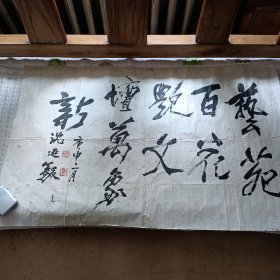 藝苑
百花
艷文
壇萬象
新
庚申二月
沈延毅